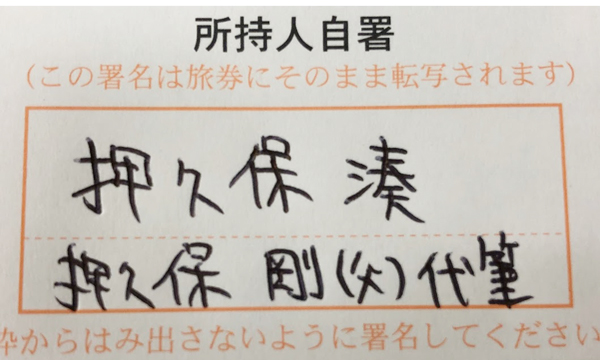 所持人自署
(この署名は旅券にそのまま転写されます)
押久保 湊
押久保 剛(父)代筆
枠からはみ出さないように署名してください